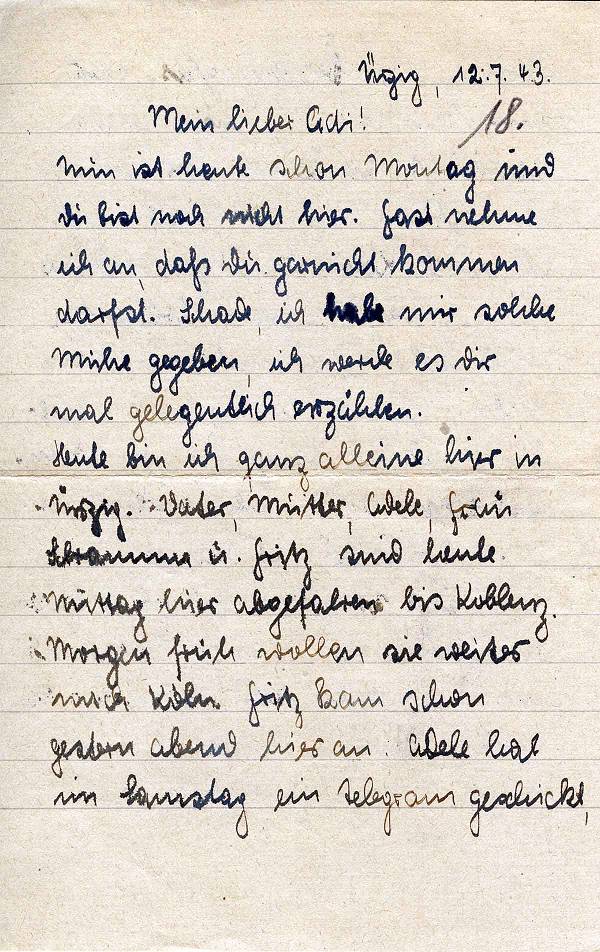 Ürzig, 12.7.43.
18.
Mein lieber Adi!
Nun ist heute schon Montag und
Du bist noch nicht hier. Fast nehme
ich an, daß Du garnicht kommen
darfst. Schade, ich habe mir solche
Mühe gegeben, ich werde es Dir
mal gelegentlich erzählen.
Heute bin ich ganz alleine hier in
Ürzig. Vater, Mutter, Adele, Frau
Schramm u. Fritz sind heute
Mittag hier abgefahren bis Koblenz.
Morgen früh wollen sie weiter
nach Köln. Fritz kam schon
gestern abend hier an. Adele hat
ihm Samstag ein Telegram geschickt,